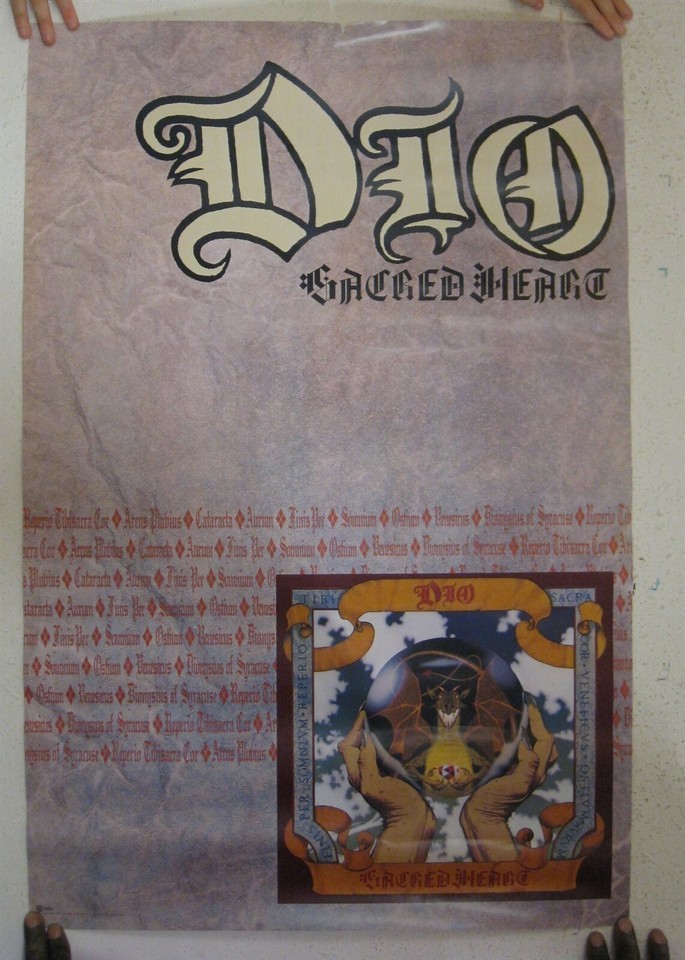 DIO
SACRED HEART
Reperio Tibisacra Cor ♦ Arcus Pluvius ♦ Cataracta ♦ Aurum ♦ Finis Per ♦ Somnium ♦ Ostium ♦ Venesicus ♦ Dionysius of Syracuse ♦ Reperio Tib
cra Cor ♦ Arcus Pluvius ♦ Cataracta ♦ Aurum ♦ Finis Per ♦ Somnium ♦ Ostium ♦ Venesicus ♦ Dionysius of Syracuse ♦ Reperio Tibisacra Cor ♦ Ar
s Pluvius ♦ Cataracta ♦ Aurum ♦ Finis Per ♦ Somnium ♦
ataracta ♦ Aurum ♦ Finis Per ♦ Somnium ♦ Ostium ♦ Venes
um ♦ Finis Per ♦ Somnium ♦ Ostium ♦ Venesicus ♦ Dionys
♦ Somnium ♦ Ostium ♦ Venesicus ♦ Dionysius of Syracuse
♦ Ostium ♦ Venesicus ♦ Dionysius of Syracuse ♦ Reperio Ti
enesicus ♦ Dionysius of Syracuse ♦ Reperio Tibisacra Cor ♦ A
nysius of Syracuse ♦ Reperio Tibisacra Cor ♦ Arcus Pluvius ♦
TIBI
DIO
SACRA
FINIS·PER·SOMNIVM·REPERIO
COR·VENEFICVS·OSTIVM·AVRVM
SACRED HEART